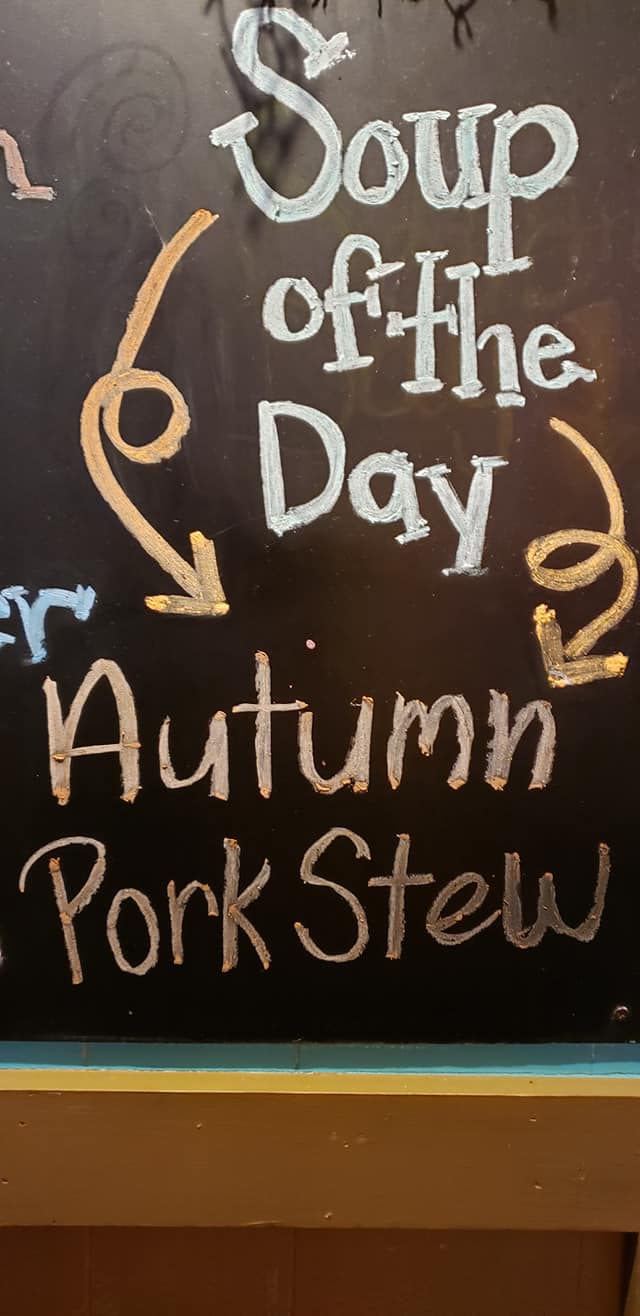 Soup
of the
Day
Autumn
Pork Stew